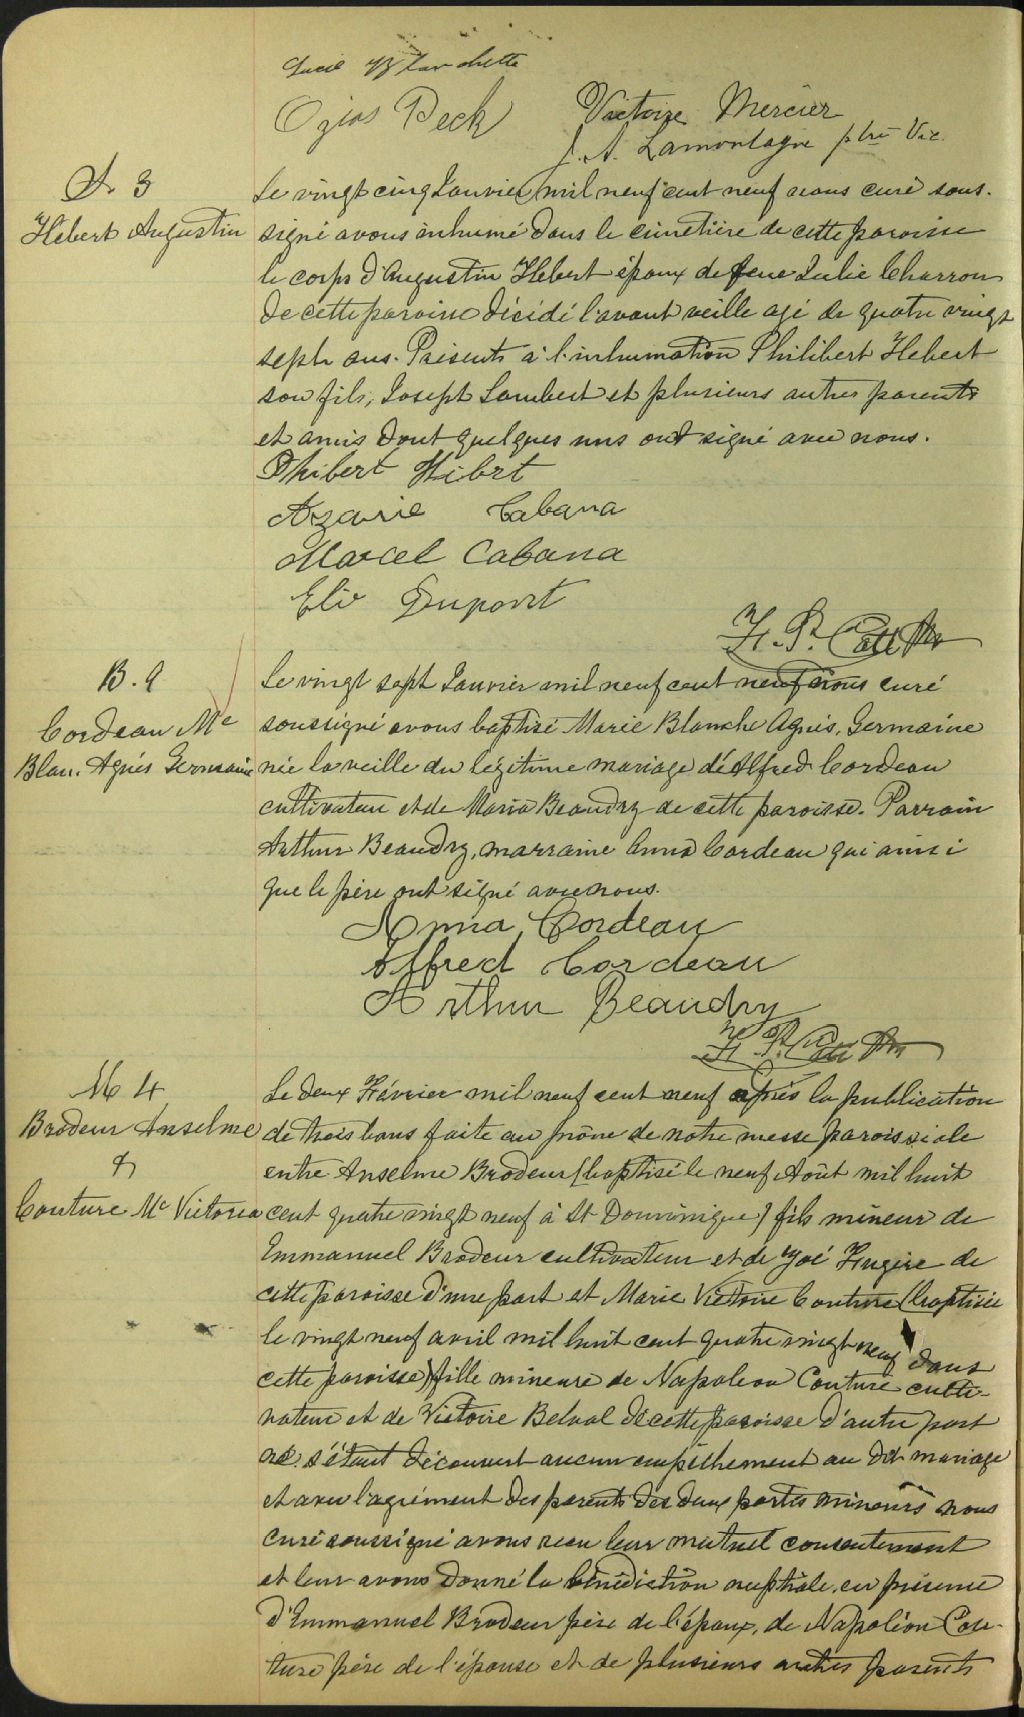 Lucie Blanchette
Ozias Peck Victoire Mercier
J. A. Lamontagne ptre Vic.
S. 3
Hébert Augustin
Le vingt cinq Janvier mil neuf cent neuf nous curé sous-
signé avons inhumé dans le cimetière de cette paroisse
le corps d'Augustin Hebert époux de feue Julie Charron
de cette paroisse décédé l'avant veille agé de quatre vingt
sept ans. Présents à l'inhumation Philibert Hebert
son fils, Joseph Lambert et plusieurs autres parents
et amis dont quelques uns ont signé avec nous.
Phibert Hibrt
Azarie Cabana
Marcel Cabana
Elie Dupont
B. 9
Cordeau Me
Blan. Agnès Germaine
Le vingt sept Janvier mil neuf cent neuf nous curé
soussigné avons baptisé Marie Blanche Agnès, Germaine
née la veille du légitime mariage de Alfred Cordeau
cultivateur et de Maria Beaudry de cette paroisse. Parrain
Arthur Beaudry, marraine Anna Cordeau qui ainsi
que le père ont signé avec nous.
Anna Cordeau
Alfred Cordeau
Arthur Beaudry
M 4
Brodeur Anselme
&
Couture Me Victoria
Le deux Février mil neuf cent neuf après la publication
de trois bans faite au prône de notre messe paroissiale
entre Anselme Brodeur (baptisé le neuf Août mil huit
cent quatre vingt neuf à St Dominique) fils mineur de
Emmanuel Brodeur cultivateur et de Zoé Fugère de
cette paroisse d'une part et Marie Victoire Couture (baptisée
le vingt neuf avril mil huit cent quatre vingt neuf dans
cette paroisse) fille mineure de Napoleon Couture culti-
vateur et de Victoire Belval de cette paroisse d'autre part
ne s'étant découvert aucun empêchement au dit mariage
et avec l'agrément des parents des deux parties mineurs nous
curé soussigné avons reçu leur mutuel consentement
et leur avons donné la bénédiction nuptiale en présence
d'Emmanuel Brodeur père de l'époux, de Napoléon Cou-
ture père de l'épouse et de plusieurs autres parents